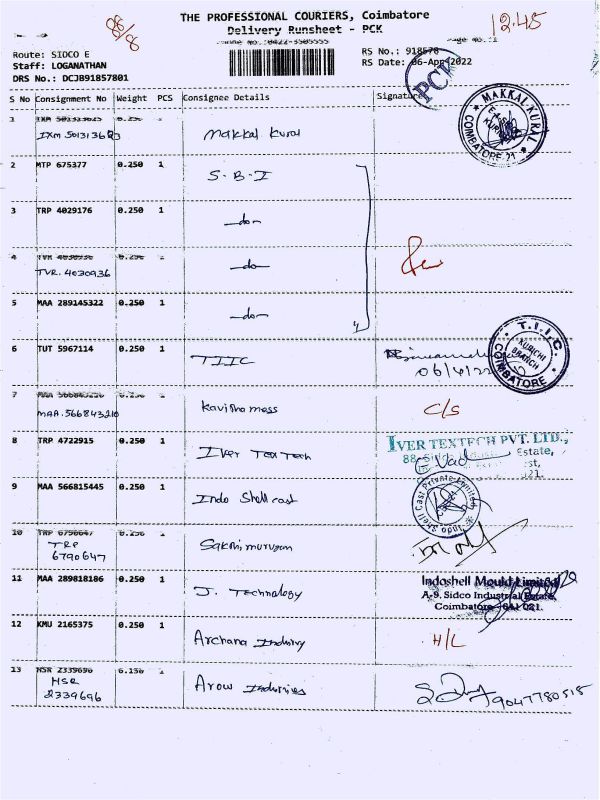 THE PROFESSIONAL COURIERS, Coimbatore
Delivery Runsheet - PCK
12.45
Route: SIDCO E
RS No.: 918578
Staff: LOGANATHAN
RS Date: 06-Apr-2022
DRS No.: DCJB91857801
PCK
S No Consignment No Weight PCS Consignee Details Signature
1
Makkal Kural
MAKKAL KURAL
COIMBATORE-21
2 MTP 675377 0.250 1 S.B.I
3 TRP 4029176 0.250 1 -do-
4 TVR 4030936 0.250 1 -do-
TVR. 4030936
5 MAA 289145322 0.250 1 -do-
6 TUT 5967114 0.250 1 TIIC
06/4/22
T.I.I.C.
KURICHI
BRANCH
COIMBATORE
7
MAA. 566843210
Kavitha mess C/S
8 TRP 4722915 0.250 1 Iver Tex Tech
IVER TEXTECH PVT. LTD.,
Estate,
9 MAA 566815445 0.250 1 Indo Shell cast
Indo Shell Cast Private Limited
10 TRP 6790647 0.250 1 Sakthi murugan
TRP
6790647
11 MAA 289818186 0.250 1 J. Technology
Indoshell Mould Limited
A-9, Sidco Industrial Estate,
Coimbatore - 641 021.
12 KMU 2165375 0.250 1 Archana Industry H/L
13 HSR 2339696 0.150 1 Arow Industries
HSR
2339696
9047780515